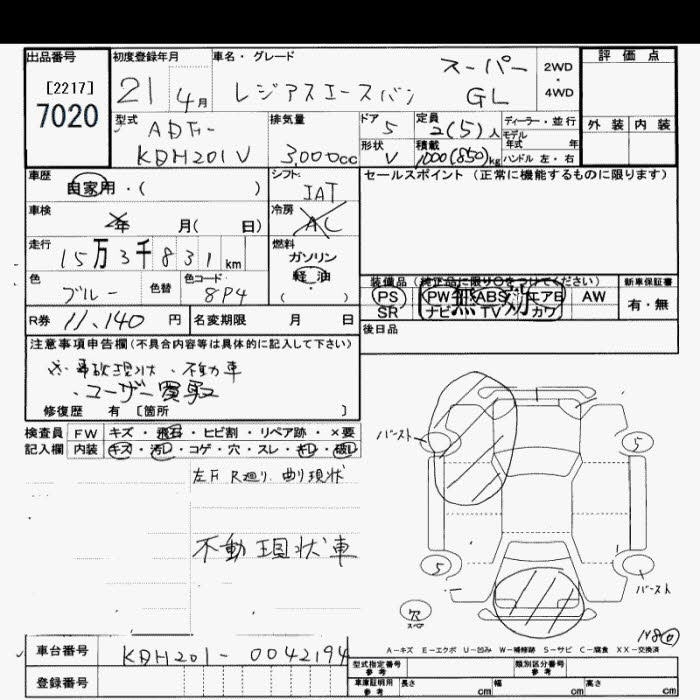 出品番号 初度登録年月 車名・グレード 評価点
[2217] 7020 21 4月 レジアスエースバン スーパーGL 2WD・4WD
外装 内装
型式 ADF-KDH201V 排気量 3,000cc ドア 5 定員 2(5)人 ディーラー・並行
モデル年式 年式
形状 V 積載 1000(850)kg ハンドル 左・右
車歴 自家用・( ) シフト IAT セールスポイント（正常に機能するものに限ります）
車検 年 月( 日) 冷房 AC
走行 15万3千831km 燃料 ガソリン 軽油 ( ・ )
色 ブルー 色替 色コード 8P4
装備品（純正品に限り○をつけてください） 新車保証書
PS PW ABS エアB AW 有・無
SR ナビ TV カワ
無効
R券 11,140円 名変期限 月 日 後日品
注意事項申告欄（不具合内容等は具体的に記入して下さい）
※事故現状・不動車
・ユーザー買取
修復歴 有 [箇所 ]
検査員 FW キズ・飛石・ヒビ割・リペア跡・×要
記入欄 内装 キズ・汚レ・コゲ・穴・スレ・キレ・破レ
左F R廻り 曲り現状
不動現状車
バースト 5
5 バースト
穴 スペア
A－キズ E－エクボ U－凹み W－補修跡 S－サビ C－腐食 XX－交換済
車台番号 KDH201-0042194
型式指定番号 参考 類別区分番号 参考
登録番号
車庫証明用 参考 長さ cm 幅 cm 高さ cm